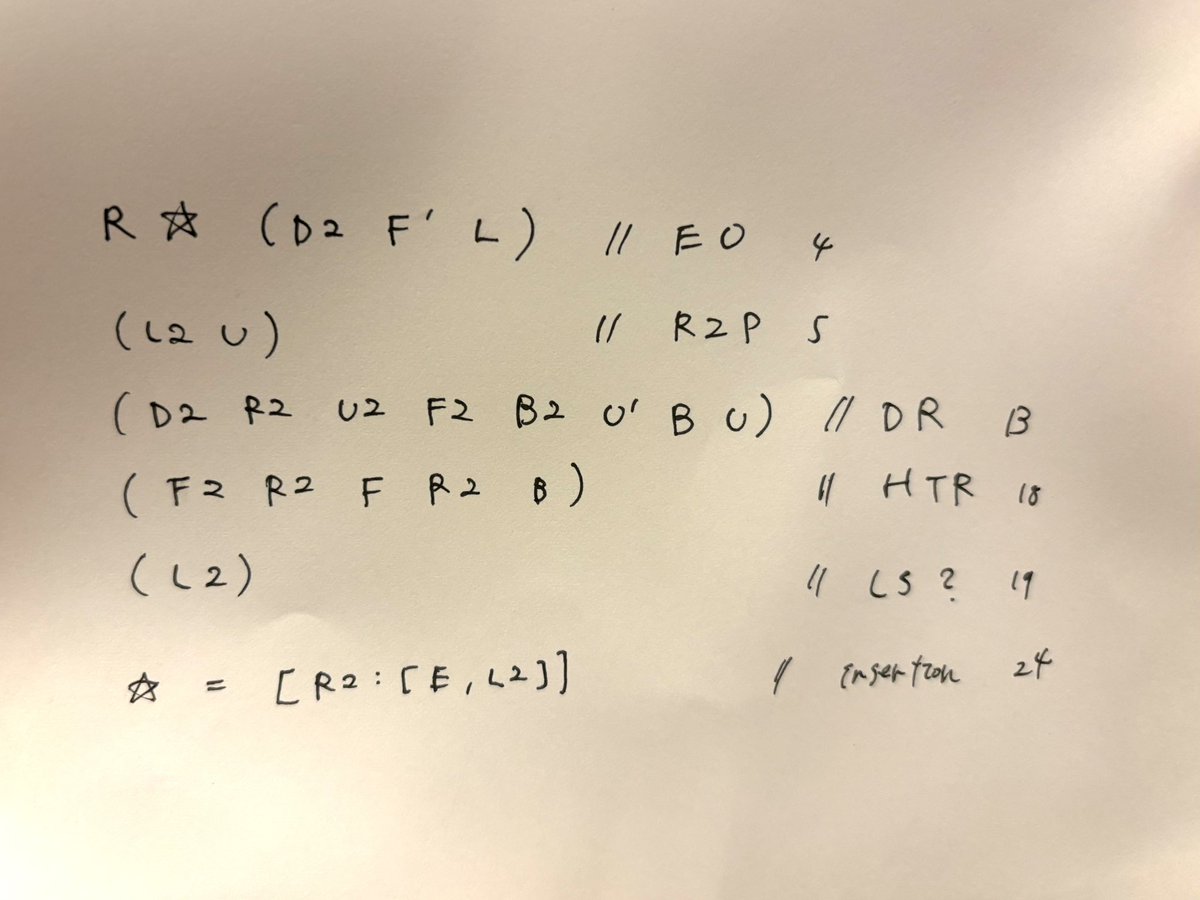 R ☆ (D2 F' L) // EO 4
(L2 U) // RZP 5
(D2 R2 U2 F2 B2 U' B U) // DR 13
(F2 R2 F R2 B) // HTR 18
(L2) // LS? 19
☆ = [R2:[E,L2]] // insertion 24